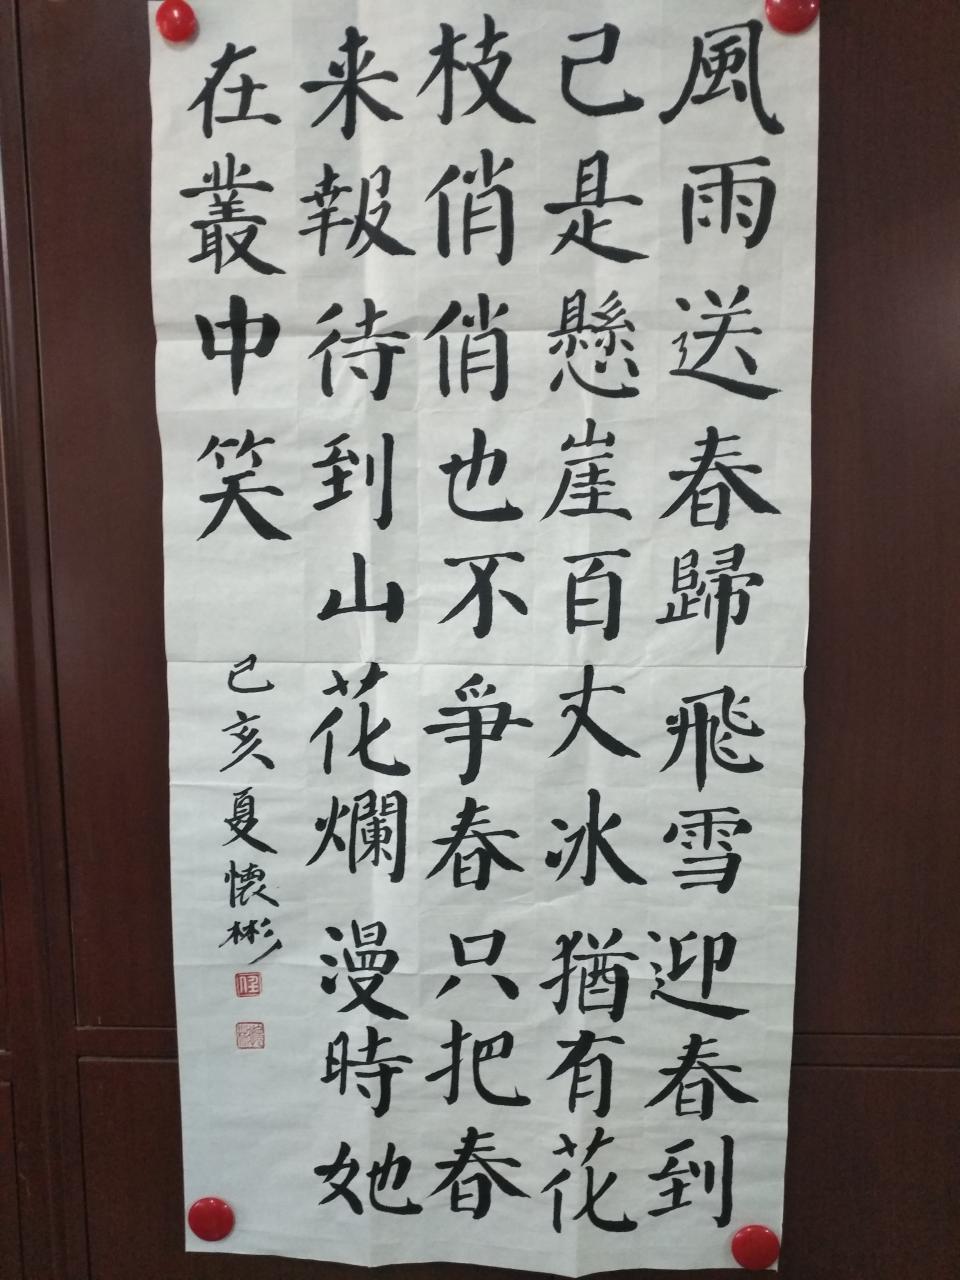 風雨送春歸飛雪迎春到
己是懸崖百丈冰猶有花
枝俏俏也不爭春只把春
来報待到山花爛漫時她
在叢中笑
己亥夏懷彬